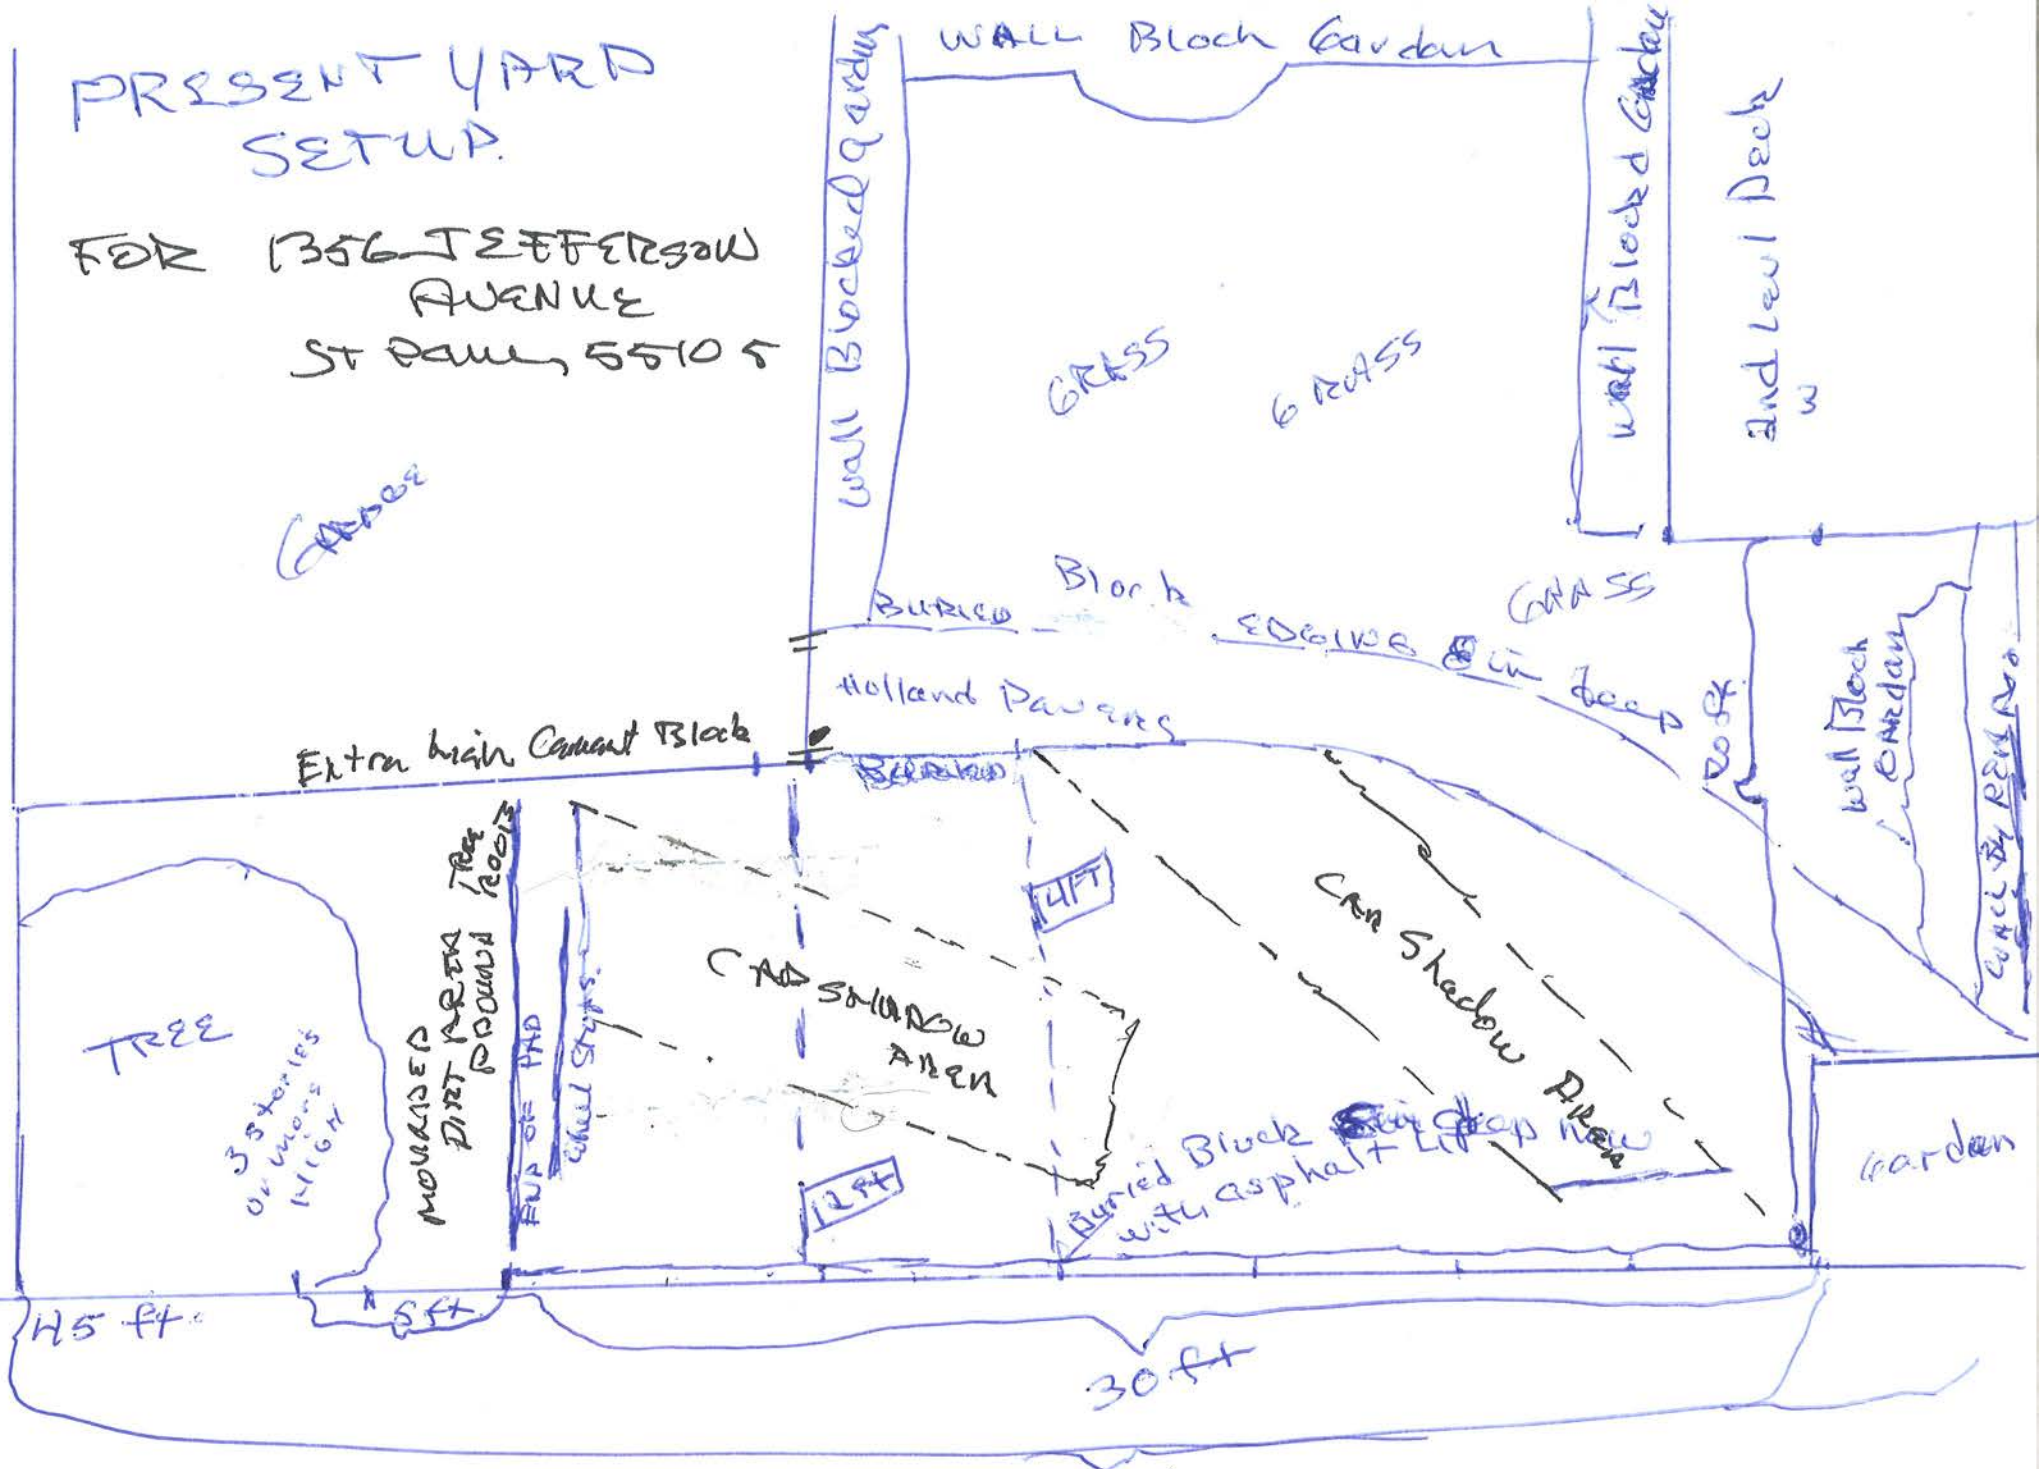 PRESENT YARD
SETUP.
FOR 1356 JEFFERSON
AVENUE
ST Paul, 55105
WALL Block Gardan
Wall Blocked garden
Wall Blocked Garden
2nd Level Deck
GRASS
GRASS
GRASS
GARAGE
BURIED Block EDGING 8 in deep
Holland Pavers
Extra high Cement Block
Buried
20 ft.
Wall Block
GARDan
TREE
3 stories
or more
HIGH
MOUNDED
DIRT AREA
AROUND
TREE
ROOTS
END OF PAD
Wheel Stops.
CAR SHADOW
AREA
14 FT
12 ft
CAR Shadow AREA
Buried Block deep now
with asphalt
Garden
45 ft.
5 ft
30 ft